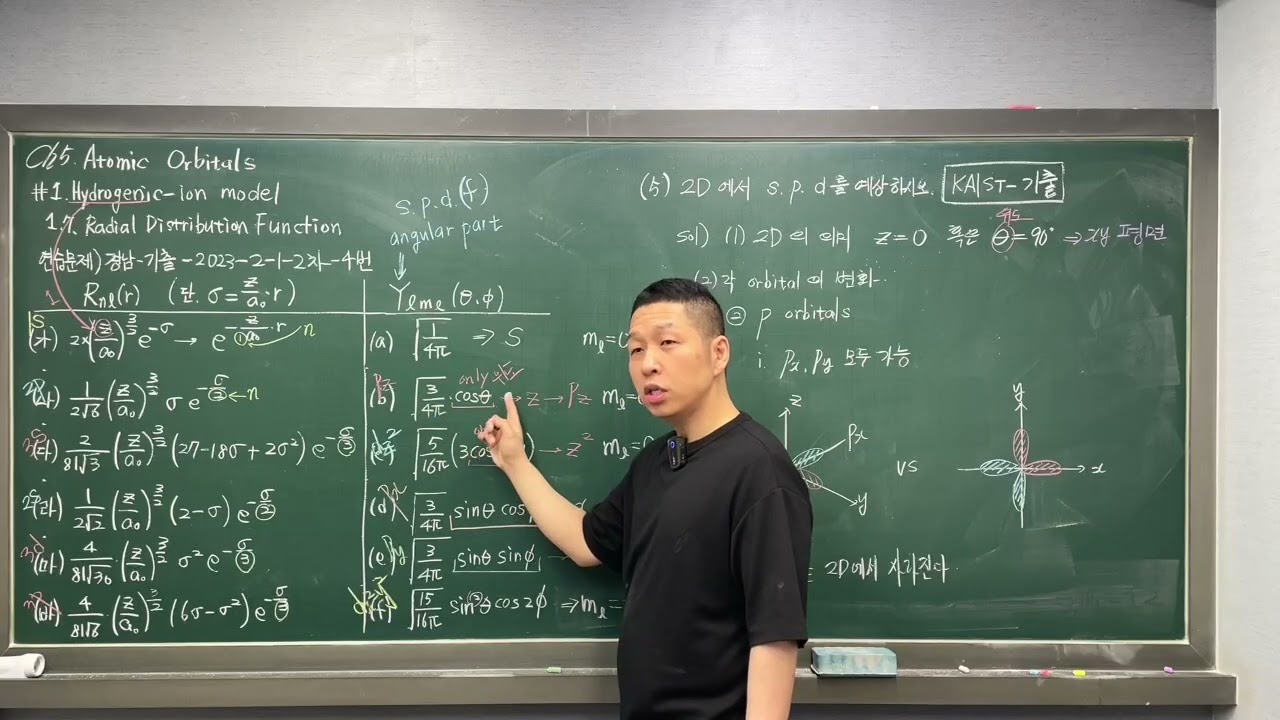 Ch5. Atomic Orbitals
#1. Hydrogenic-ion model
1.7. Radial Distribution Function
연습문제) 경남-기출-2023-2-1-2차-4번
R_nl(r) (단. σ = Z/a₀·r)
(가) 2×(Z/a₀)^(3/2) e^(-σ) → e^(-Z/(①a₀)·r) ← n
1/(2√6) (Z/a₀)^(3/2) σ e^(-σ/2) ← n
(다) 2/(81√3) (Z/a₀)^(3/2) (27-18σ+2σ²) e^(-σ/3)
(라) 1/(2√2) (Z/a₀)^(3/2) (2-σ) e^(-σ/2)
(마) 4/(81√30) (Z/a₀)^(3/2) σ² e^(-σ/3)
(바) 4/(81√6) (Z/a₀)^(3/2) (6σ-σ²) e^(-σ/3)
s.p.d.(f)
angular part
↓
Y_lml (θ.φ)
(a) √(1/4π) ⇒ S m_l=
only
(b) √(3/4π) cosθ → z → Pz m_l=
√(5/16π) (3cos ) → z² m_l=
(d) √(3/4π) sinθ cos
(e) Py √(3/4π) sinθ sinφ
(f) √(15/16π) sin²θ cos2φ ⇒ m_l=
(5) 2D에서 s.p.d를 예상하시오. KAIST-기출
위도
sol) (1) 2D의 의미 z=0 혹은 θ=90° ⇒ xy 평면
(2) 각 orbital의 변화
② p orbitals
i. Px, Py 모두 가능
z
Px
y
vs
y
x
2D에서 사라진다.